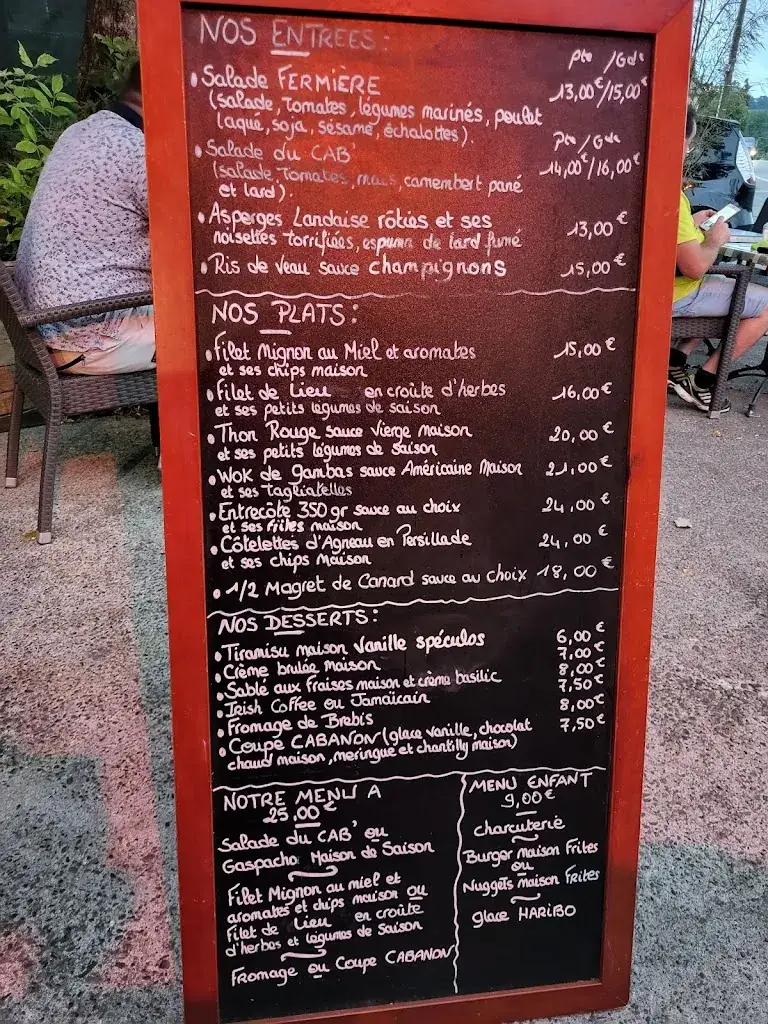 NOS ENTREES:
Pte / Gde
• Salade FERMIÈRE 13,00€/15,00€
(salade, tomates, légumes marinés, poulet
laqué, soja, sésame, échalottes).
Pte / Gde
• Salade du CAB' 14,00€/16,00€
(salade, tomates, maïs, camembert pané
et lard).
• Asperges Landaise rôties et ses 13,00€
noisettes torrifiées, espuma de lard fumé
• Ris de veau sauce champignons 15,00€
NOS PLATS:
• Filet Mignon au Miel et aromates 15,00€
et ses chips maison
• Filet de Lieu en croûte d'herbes 16,00€
et ses petits légumes de saison
• Thon Rouge sauce Vierge maison 20,00€
et ses petits légumes de saison
• Wok de gambas sauce Américaine Maison 21,00€
et ses Tagliatelles
• Entrecôte 350gr sauce au choix 24,00€
et ses frites maison
• Côtelettes d'Agneau en Persillade 24,00€
et ses chips Maison
• 1/2 Magret de Canard sauce au choix 18,00€
NOS DESSERTS:
• Tiramisu maison Vanille spéculos 6,00€
• Crème brulée maison 7,00€
• Sablé aux Fraises maison et crème basilic 8,00€
• Irish Coffee ou Jamaïcain 7,50€
• Fromage de Brebis 8,00€
• Coupe CABANON (glace vanille, chocolat 7,50€
chaud maison, meringue et chantilly maison)
NOTRE MENU A
25,00€
Salade du CAB' ou
Gaspacho Maison de Saison
Filet Mignon au miel et
aromates et chips maison ou
Filet de Lieu en croûte
d'herbes et légumes de Saison
Fromage ou Coupe CABANON
MENU ENFANT
9,00€
charcuterie
Burger maison Frites
ou
Nuggets maison Frites
glace HARIBO